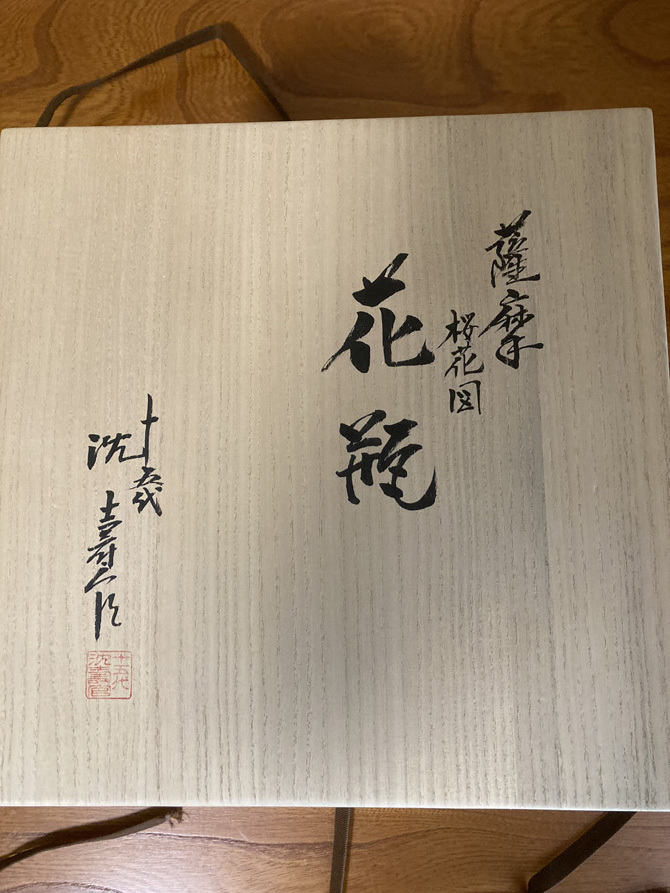 薩摩
桜花図
花瓶
十五代
沈壽官
十五代
沈壽官